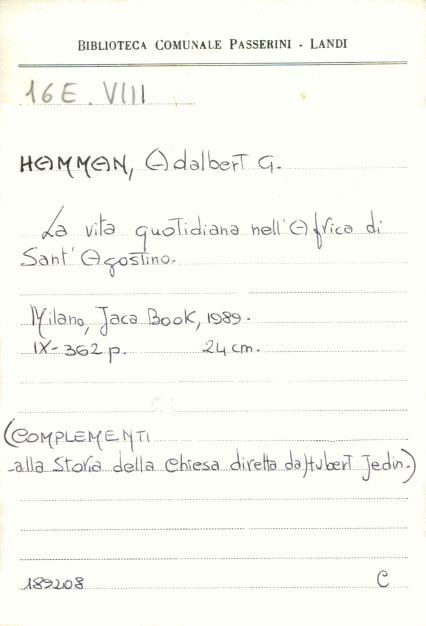 BIBLIOTECA COMUNALE PASSERINI - LANDI
16 E. VIII
HAMMAN, Adalbert G.
La vita quotidiana nell'Africa di
Sant'Agostino.
Milano, Jaca Book, 1989.
IX-362 p. 24 cm.
(COMPLEMENTI
alla Storia della Chiesa diretta da Hubert Jedin.)
189208 C